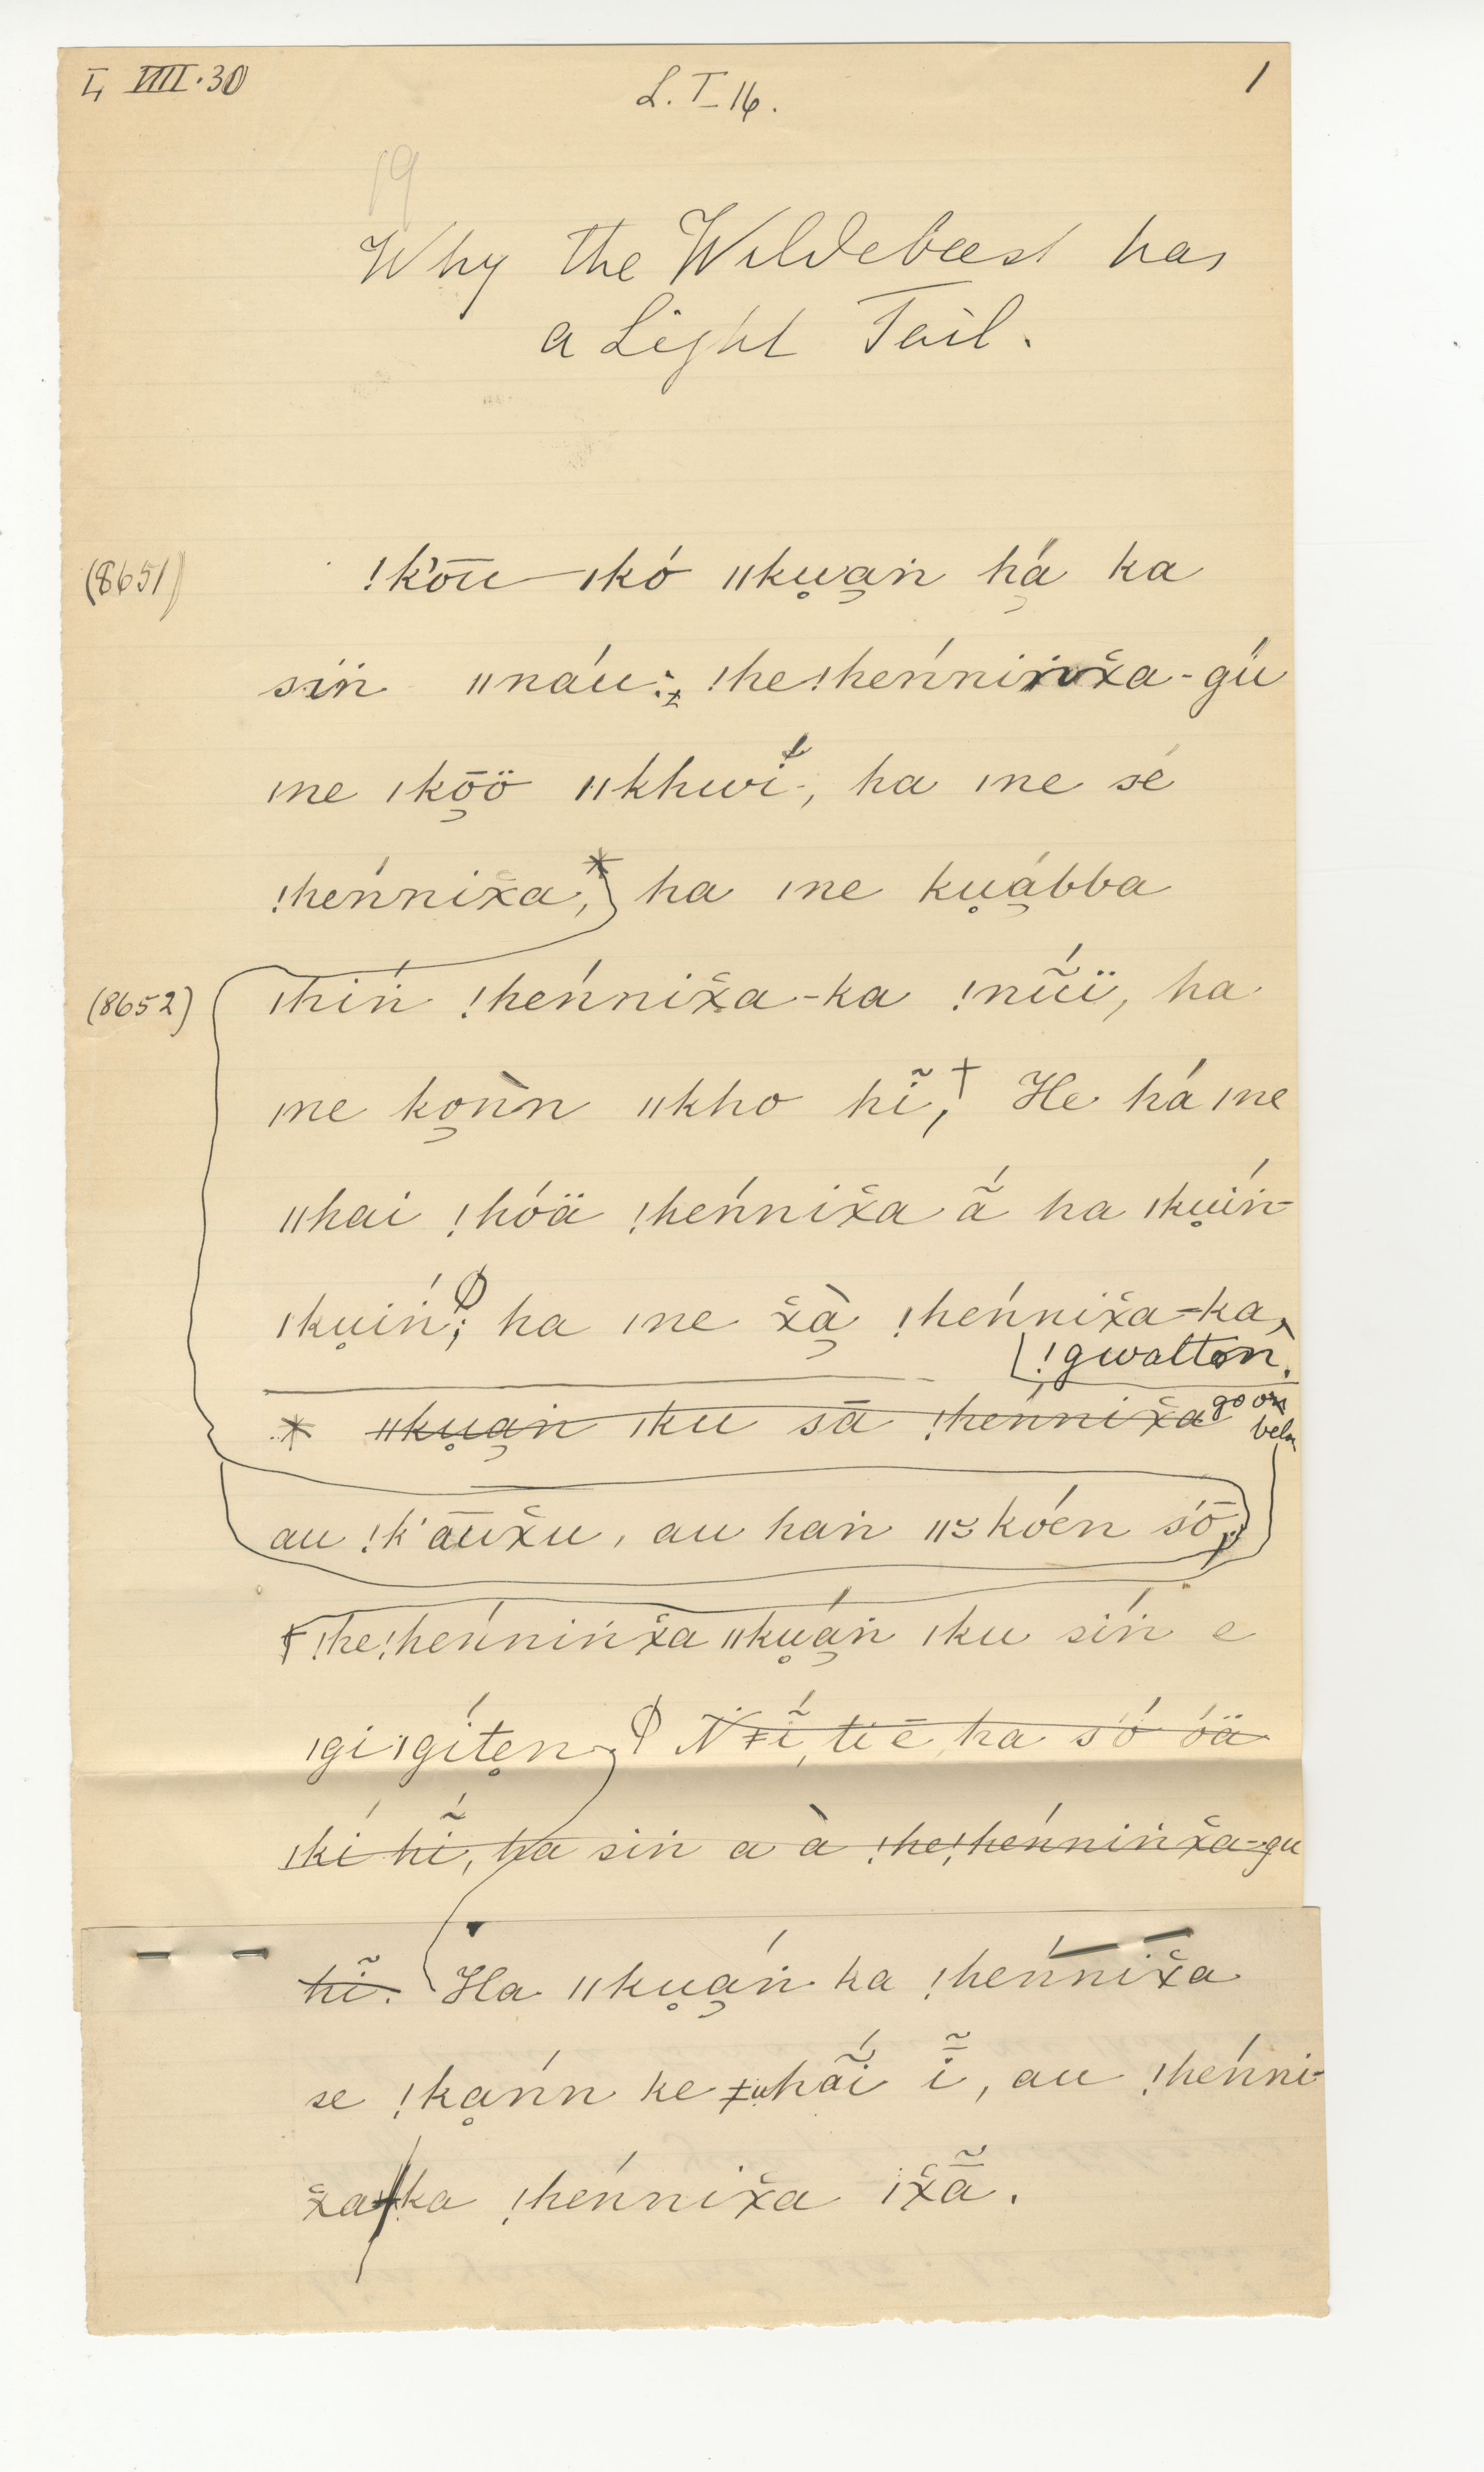 L VIII.30
L. T_16.
1
19
Why the Wildebeest has
a Light Tail.
(8651) !k'o͞u ǀkó ǁku̥a̰ṅ há̰ ka
siṅ̈ ǁnáu; !he!heńniṅx̌a-gú
ǀne ǀkō̰ö ǁkhwi-, ha ǀne sé
!heńnix̌a,* ha ǀne ku̥á̰bba
(8652) ǀhiń !heńnix̌a-ka !nṹï, ha
ǀne ko̰ǹn ǁkho hĩ,† He há ǀne
ǁhai !hóä !heńnix̌a ã́ ha ǀku̥iṅ́-
ǀku̥iṅ́; ha ǀne x̌à̰ !heńnix̌a-ka,
!gwatten.
go on
below
* ǁku̥a̰ṅ ǀku sā !heńnix̌a
au !k'a͞ux̌u, au haṅ ǁkóen só̄,
† !he!heńniṅx̌a ǁku̥á̰ṅ ǀku siṅ́ e
ǀgiǀgíte̥n, Ṅ ǂĩ́, ti ē ha só óä
ǀkí hĩ́, ha siṅ a à !he!heńniṅx̌a-gu
hĩ. Ha ǁku̥á̰ṅ ka !heńnix̌a
se !ka̰ńn ke ǂu̥hã́i ĩ̄, au !heńni-
x̌a-ka !heńnix̌a ǀx̌ã̄.